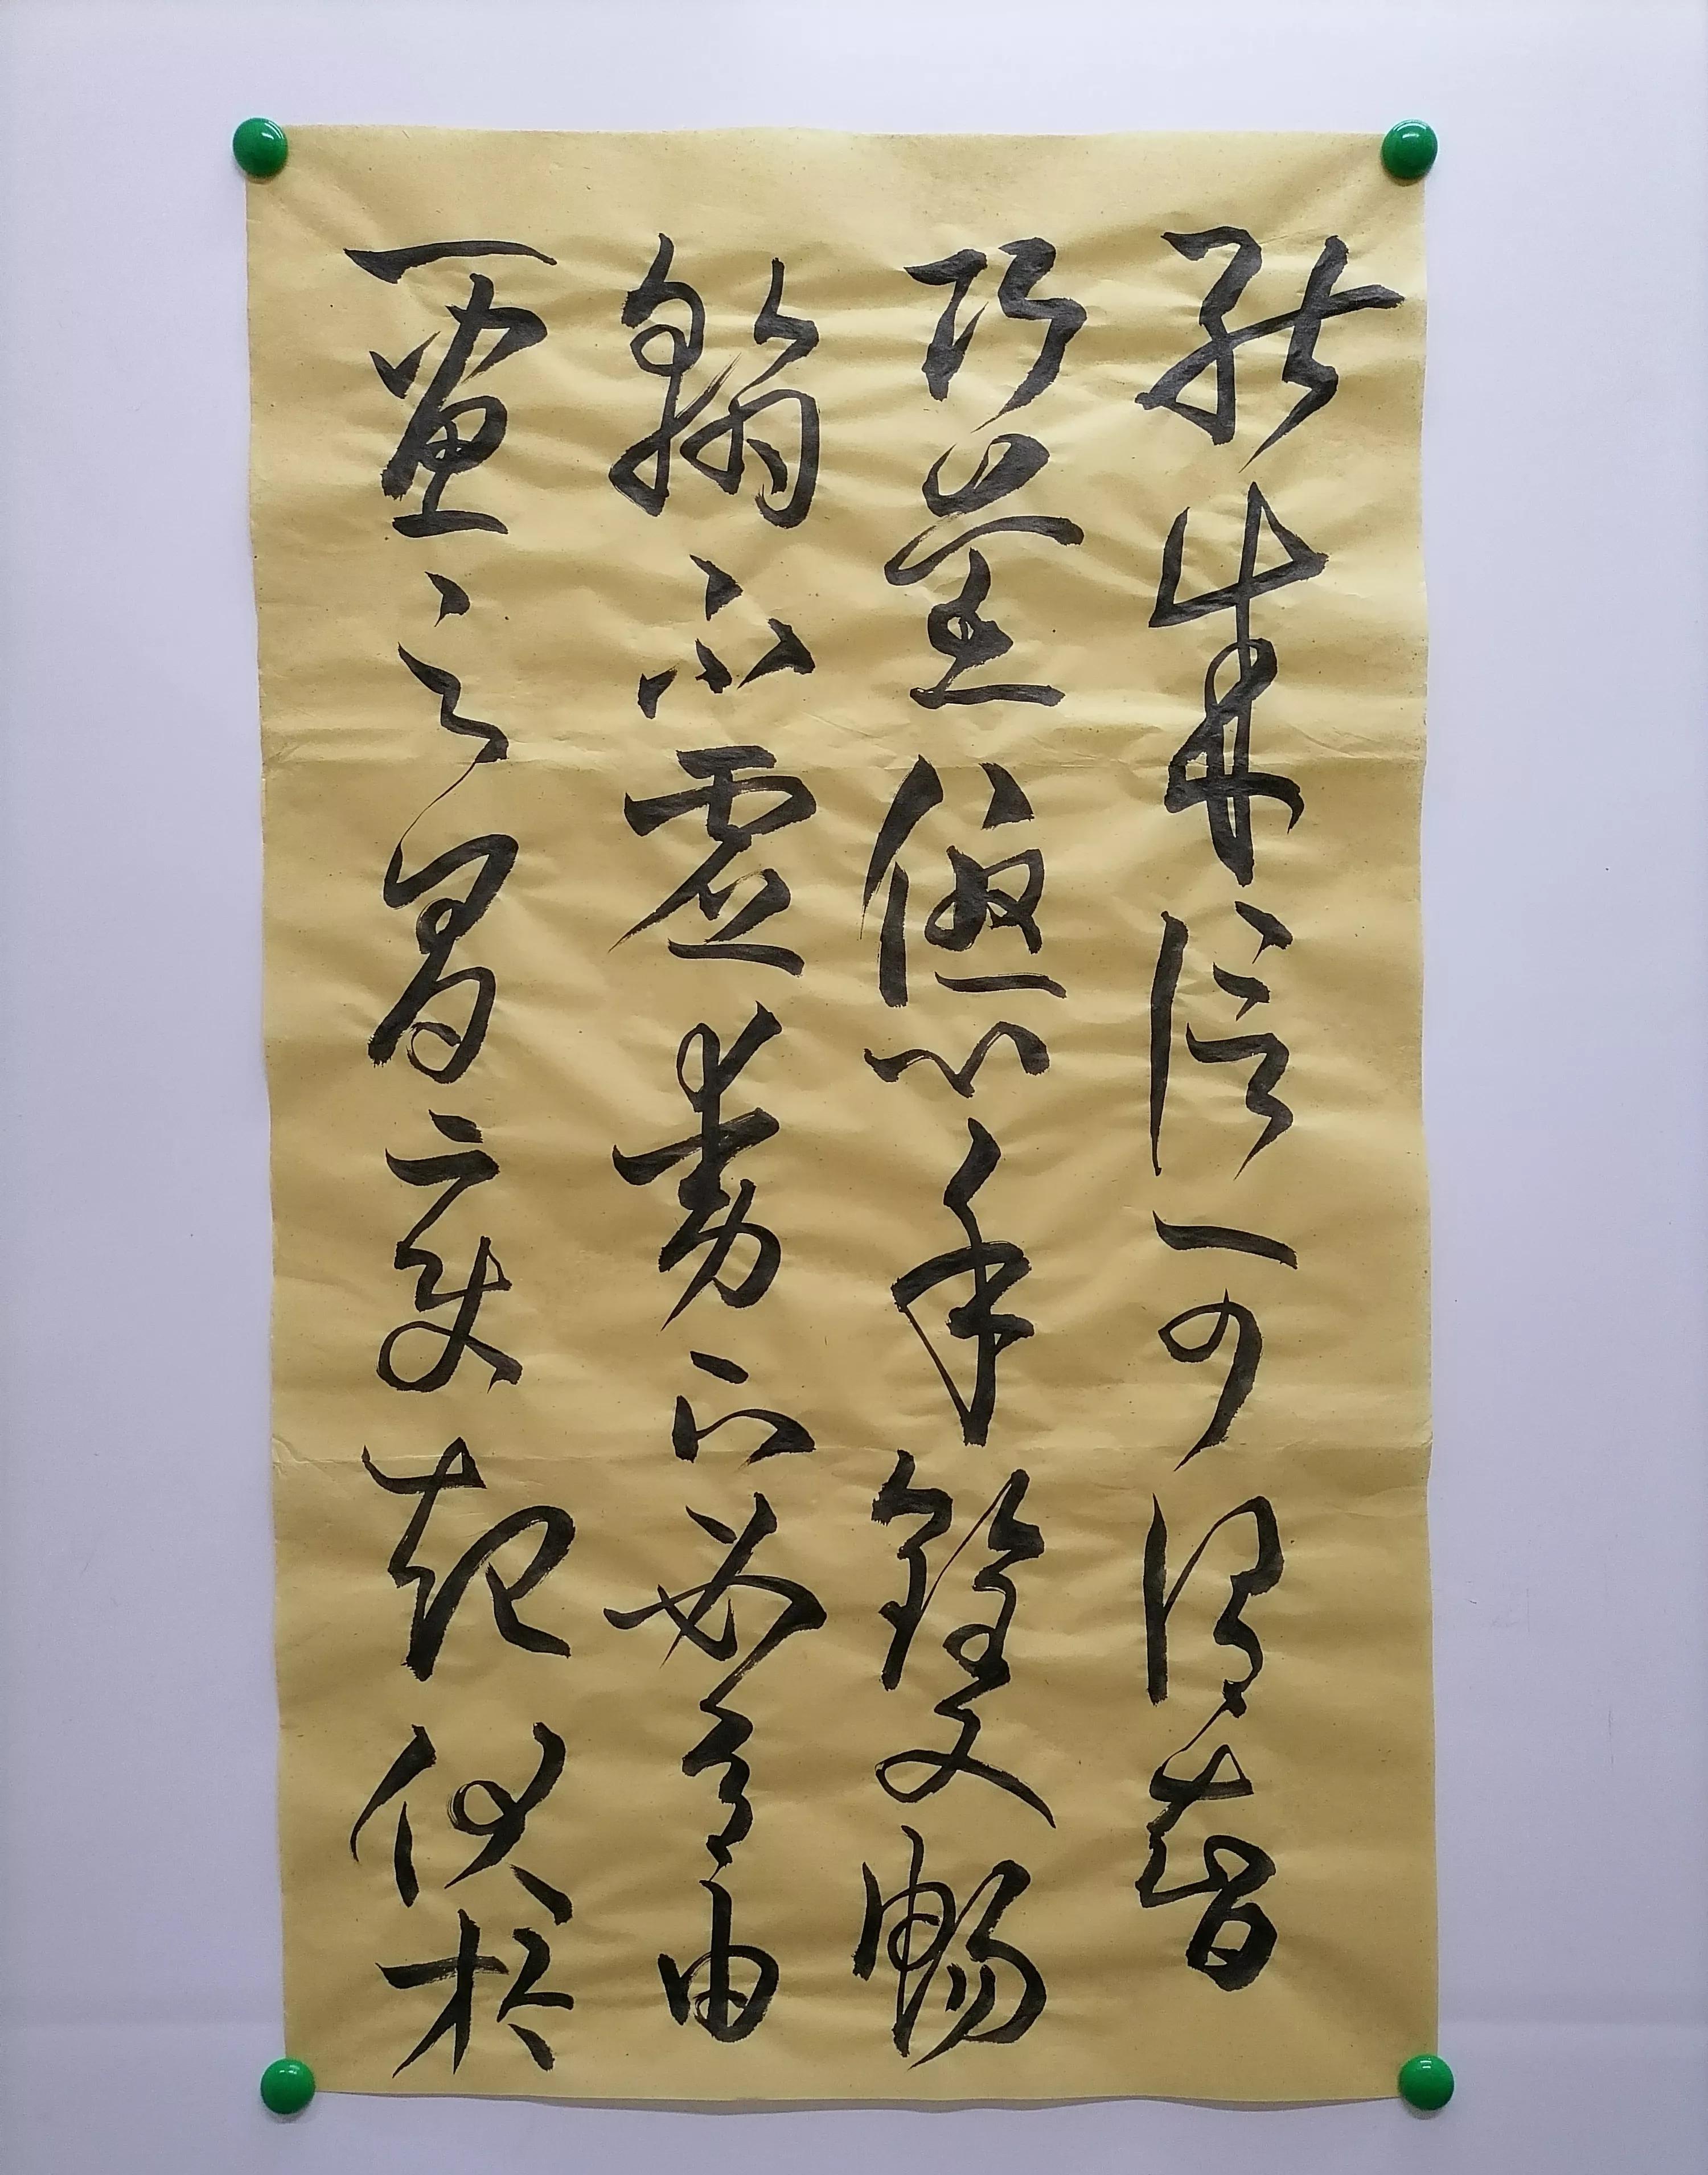 能成信可謂智
巧兼優心手雙暢
翰不虛動下必有由
一畫之間變起伏於